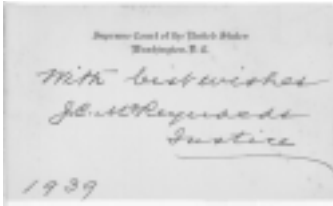 Supreme Court of the United States
Washington, D.C.
With best wishes
J.C. McReynolds
Justice
1939